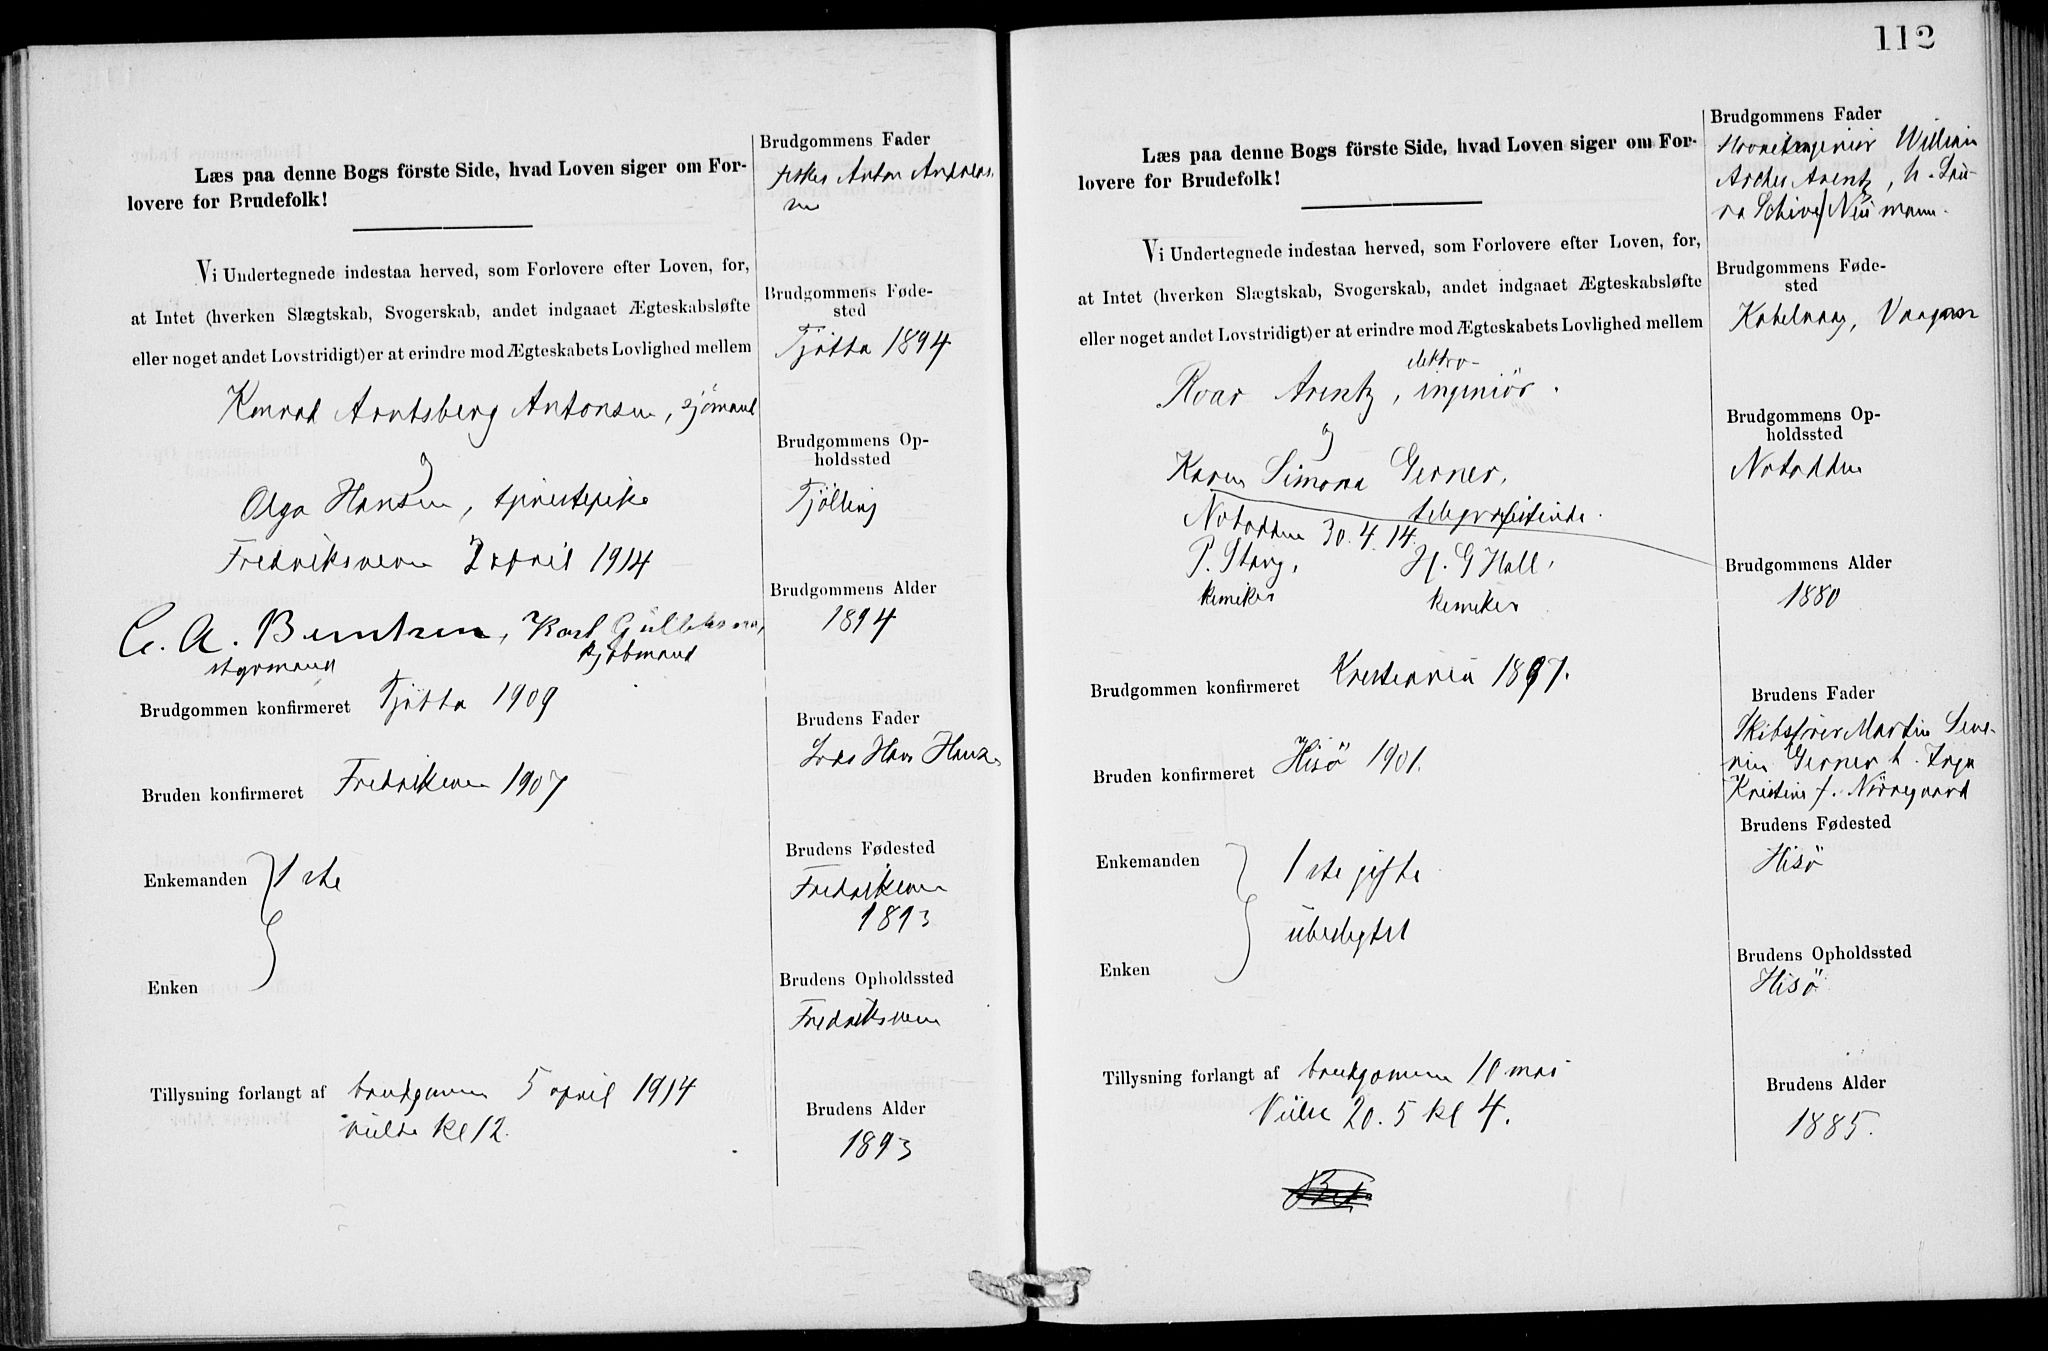 Læs paa denne Bogs förste Side, hvad Loven siger om For-
lovere for Brudefolk!
Vi Undertegnede indestaa herved, som Forlovere efter Loven, for,
at Intet (hverken Slægtskab, Svogerskab, andet indgaaet Ægteskabsløfte
eller noget andet Lovstridigt) er at erindre mod Ægteskabets Lovlighed mellem
Konrad Arntsberg Antonsen, sjömand
og
Olga Hansen, tjenestepike
Fredriksvern 2 april 1914
C. A. Berntsen, Karl Gulliksen,
styrmand kjöbmand
Brudgommen konfirmeret Tjötta 1909
Bruden konfirmeret Fredriksvern 1907
Enkemanden 1 ste
Enken
Tillysning forlangt af brudgommen 5 april 1914
vielse kl 12.
Brudgommens Fader
Fisker Anton Andreas-
sen
Brudgommens Føde-
sted
Tjötta 1894
Brudgommens Op-
holdssted
Tjölling
Brudgommens Alder
1894
Brudens Fader
Lods Hans Hansen
Brudens Fødested
Fredriksvern
1893
Brudens Opholdssted
Fredriksvern
Brudens Alder
1893
112
Læs paa denne Bogs förste Side, hvad Loven siger om For-
lovere for Brudefolk!
Vi Undertegnede indestaa herved, som Forlovere efter Loven, for,
at Intet (hverken Slægtskab, Svogerskab, andet indgaaet Ægteskabsløfte
eller noget andet Lovstridigt) er at erindre mod Ægteskabets Lovlighed mellem
elektro-
Roar Arentz, ingeniör.
og
Karen Simona Gerner,
telegrafistinde.
Notodden 30.4.14.
P. Stang, H. G Hall,
kemiker kemiker
Brudgommen konfirmeret Kristiania 1897.
Bruden konfirmeret Hisö 1901.
Enkemanden 1 ste gifte
ubeslegtet
Enken
Tillysning forlangt af brudgommen 10 mai
Vielse 20.5 kl 4.
Brudgommens Fader
Havneingeniör William
Archer Arentz, h. Lau-
ra Schive Neumann.
Brudgommens Føde-
sted
Kabelvaag, Vaagan
Brudgommens Op-
holdssted
Notodden
Brudgommens Alder
1880
Brudens Fader
Skibsförer Martin Seve-
rin Gerner h. Inga
Kristine f. Nörregaard
Brudens Fødested
Hisö
Brudens Opholdssted
Hisö
Brudens Alder
1885.